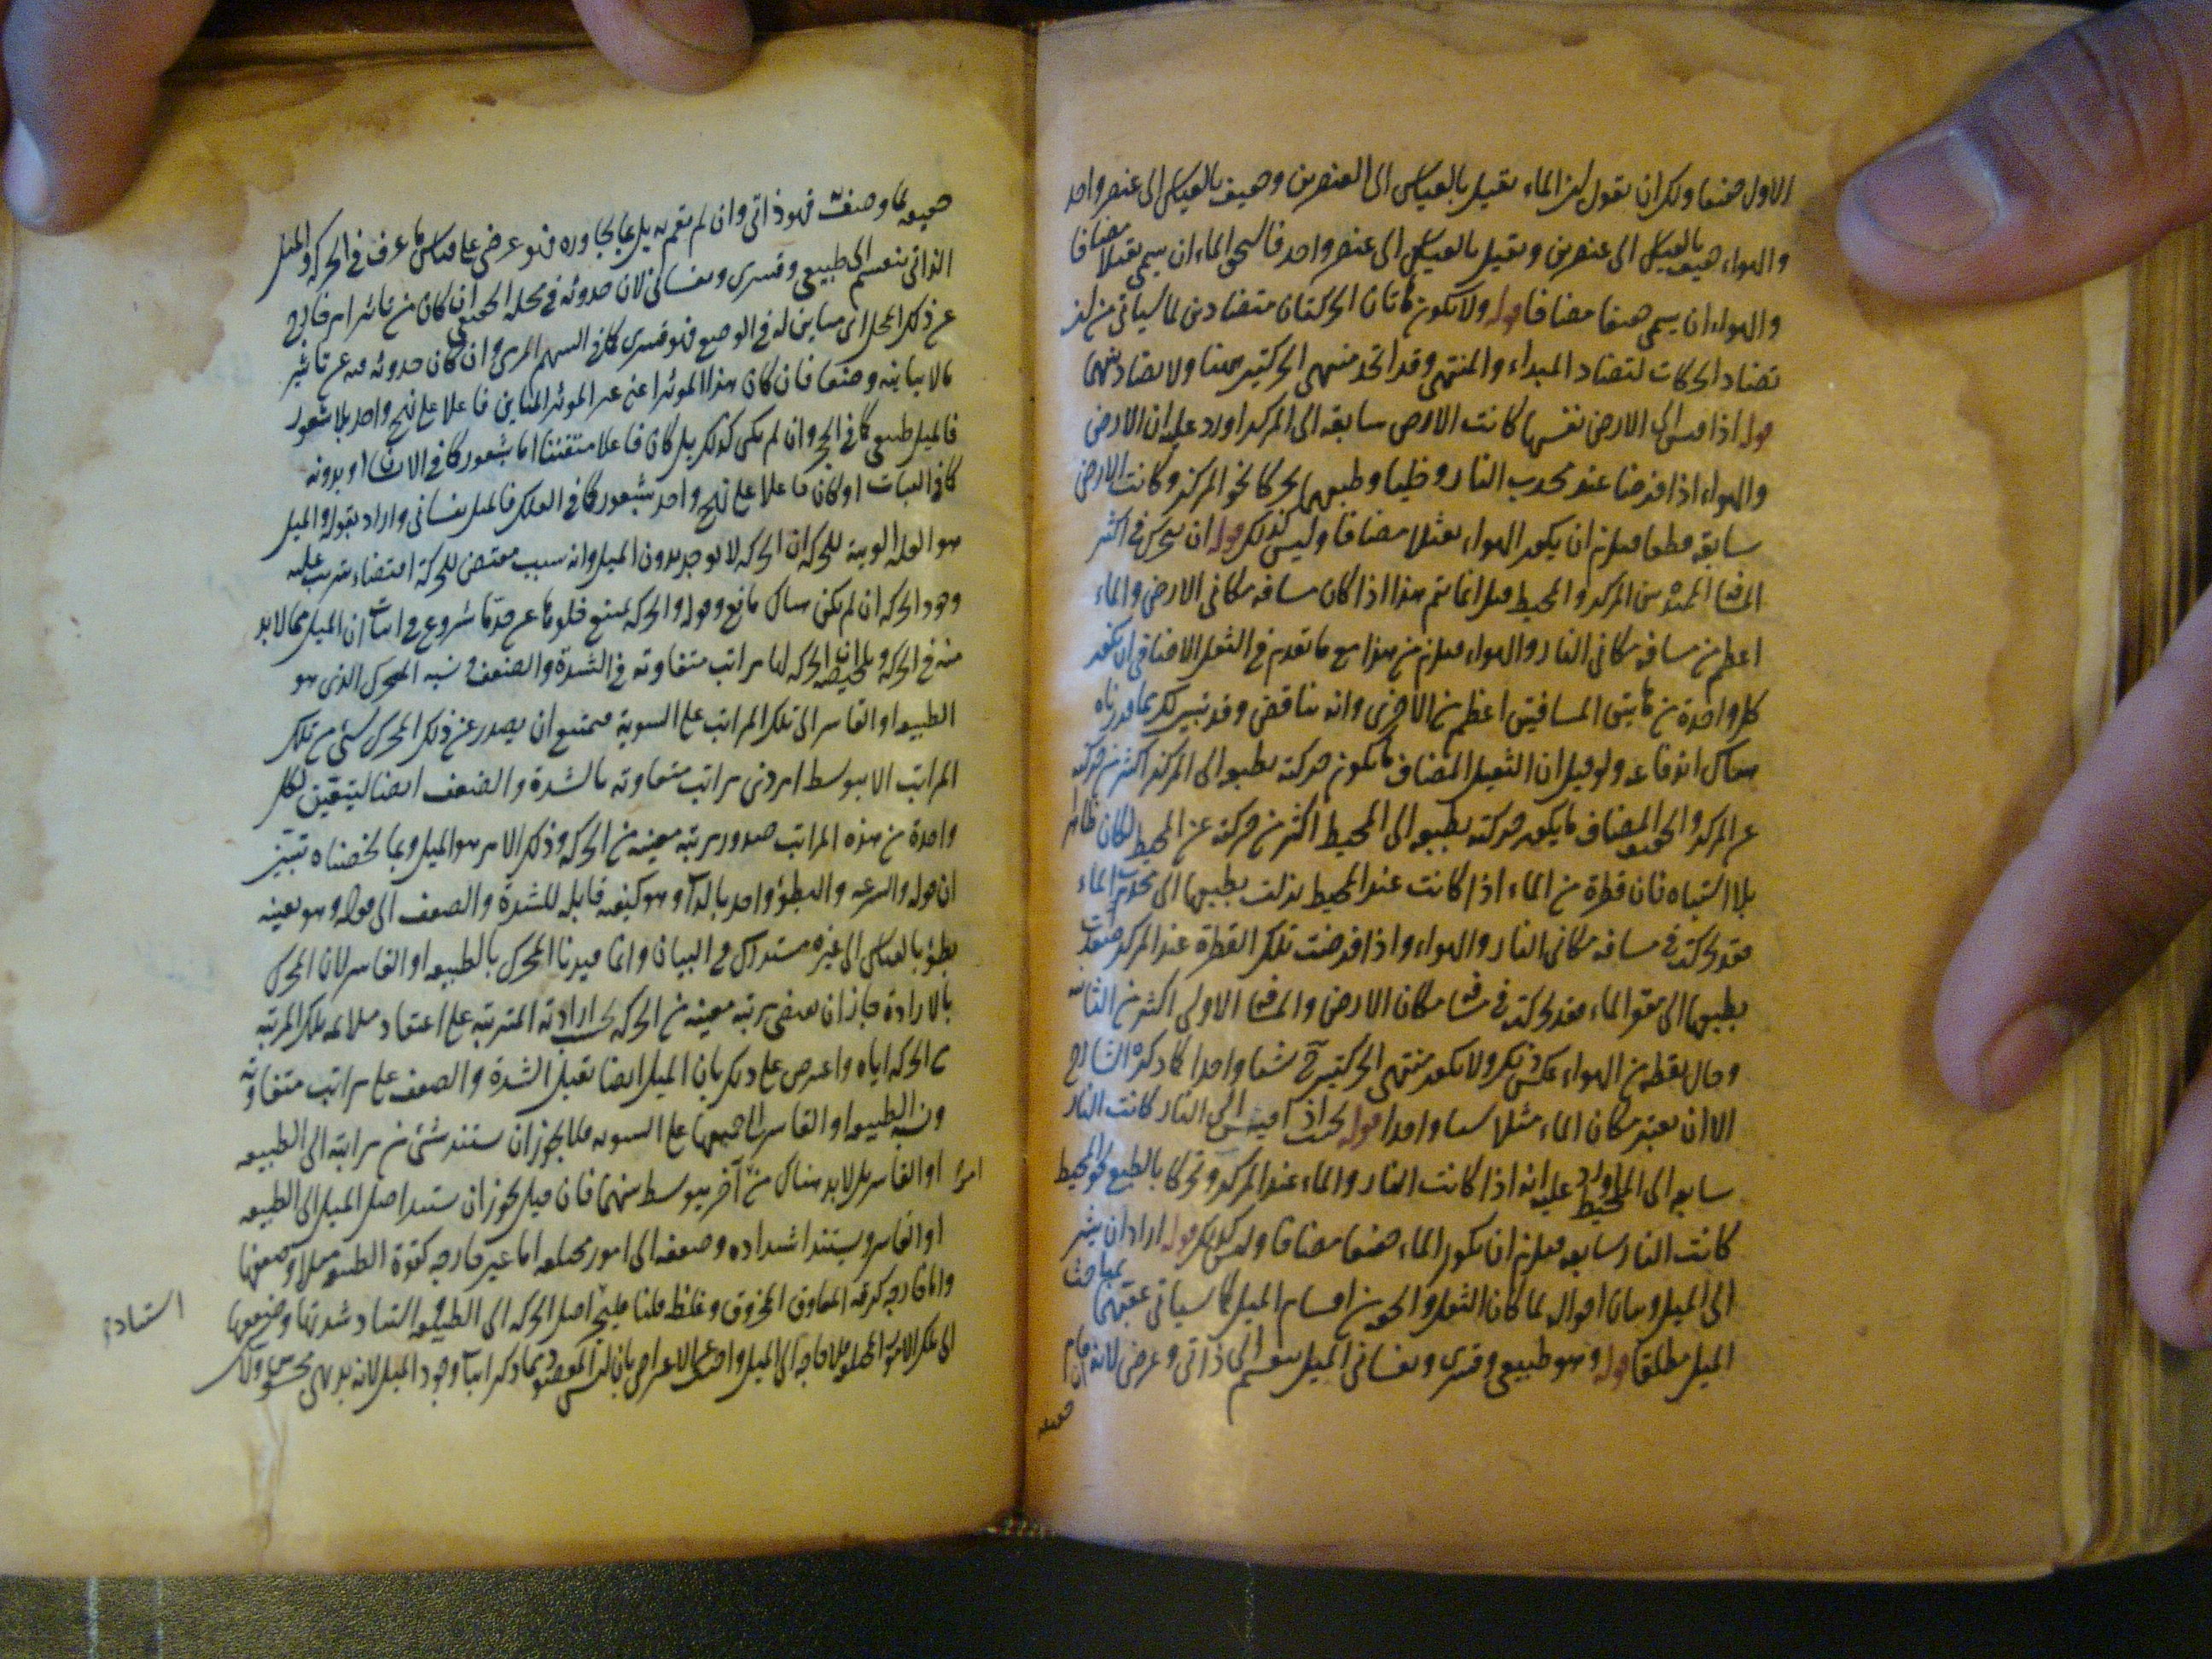 الاول خفيفا ولك ان تقول ان الماء ثقيل بالقياس الى العنصرين وخفيف بالقياس الى عنصر واحد
والهواء خفيف بالقياس الى عنصرين وثقيل بالقياس الى عنصر واحد فاستحق الماء ان يسمى ثقيلا مضافا
والهواء ان يسمى خفيفا مضافا قوله ولا تكون هاتان الحركتان متضادتين لما سيأتي من ان
تضاد الحركات لتضاد المبداء والمنتهى وقد اتحد منتهى الحركتين ههنا ولا تضاد بينهما
قوله اذا قيس الى الارض نفسها كانت الارض سابقة الى المركز اورد عليه ان الارض
والهواء اذا فرضنا عند محدب النار وخليا وطبعهما تحركا نحو المركز وكانت الارض
سابقة قطعا فيلزم ان يكون الهواء ثقيلا مضافا وليس كذلك قوله ان يتحرك في اكثر
المسافة الممتدة بين المركز والمحيط قيل انما يتم هذا اذا كان مسافة مكاني الارض والماء
اعظم من مسافة مكاني النار والهواء فيلزم من هذا مع ما تقدم في الثقل الاضافي ان يكون
كل واحدة من هاتين المسافتين اعظم من الاخرى وانه تناقض وقد تبين لك بما قررناه
هناك اندفاعه ولو قيل ان الثقيل المضاف ما يكون حركته بطبعه الى المركز اكثر من حركته
عن المركز والخفيف المضاف ما يكون حركته بطبعه الى المحيط اكثر من حركته عن المحيط لكان ظاهرا
بلا اشتباه فان قطرة من الماء اذا كانت عند المحيط نزلت بطبعها الى محدب الماء
فقد تحركت في مسافة مكاني النار والهواء واذا فرضت تلك القطرة عند المركز صعدت
بطبعها الى مقعر الماء فقد تحركت في مسافة مكان الارض والمسافة الاولى اكثر من الثانية
وحال نقطة من الهواء عكس ذلك ولا يكون منتهى الحركتين شيئا واحدا كما ذكره الشارح
الا ان يعتبر مكان الماء مثلا شيئا واحدا قوله بحيث اذا قيس الى النار كانت النار
سابقة الى المحيط اورد عليه انه اذا كانت النار والماء عند المركز وتحركا بالطبع نحو المحيط
كانت النار سابقة فيلزم ان يكون الماء خفيفا مضافا وليس كذلك قوله اراد ان يشير
الى الميل وبيان احواله لما كان الثقل والخفة من اقسام الميل كما سيأتي عقبهما بمباحث
الميل مطلقا قوله وهو طبيعي وقسري ونفساني الميل ينقسم الى ذاتي وعرضي لانه ان قام
حقيقة
حقيقة بما وصف به فهو ذاتي وان لم يقم به بل بما يجاوره فهو عرضي على قياس ما عرف في الحركة والميل
الذاتي ينقسم الى طبيعي وقسري ونفساني لان حدوثه في محله الحقيقي ان كان من تاثير امر خارج
عن ذلك المحل اي مباين له في الوضع فهو قسري كما في السهم المرمي وان كان حدوثه فيه عن تاثير
ما لا يباينه وضعا فان كان هذا الموثر اعني غير الموثر المباين فاعلا على نهج واحد بلا شعور
فالميل طبيعي كما في الحجر وان لم يكن كذلك بل كان فاعلا متفننا اما بشعور كما في الانسان او بدونه
كما في النبات او كان فاعلا على نهج واحد بشعور كما في الفلك فالميل نفساني واراد بقوله والميل
هو العلة القريبة للحركة ان الحركة لا توجد بدون الميل وانه سبب مقتض للحركة اقتضاء يترتب عليه
وجود الحركة ان لم يكن هناك مانع وقوله والحركة يمتنع خلوها عن حد ما شروع في اثبات ان الميل مما لابد
منه في الحركة وتلخيصه ان الحركة لها مراتب متفاوتة في الشدة والضعف ونسبة المحرك الذي هو
الطبيعة او القاسر الى تلك المراتب على السوية فيمتنع ان يصدر عن ذلك المحرك شئ من تلك
المراتب الا بتوسط امر ذي مراتب متفاوتة بالشدة والضعف ايضا ليتعين لكل
واحدة من هذه المراتب صدور مرتبة معينة من الحركة وذلك الامر هو الميل وبما لخصناه تبين
ان قوله والسرعة والبطؤ واحد بالذات وهو كيفية قابلة للشدة والضعف الى قوله وهو بعينه
بطؤ بالقياس الى غيره مستدرك في البيان وانما قيدنا المحرك بالطبيعة او القاسر لان المحرك
بالارادة جاز ان يقتضي مرتبة معينة من الحركة بحسب ارادته المترتبة على اعتقاد ملايمة تلك المرتبة
من الحركة اياه واعترض على ذلك بان الميل ايضا يقبل الشدة والضعف على مراتب متفاوتة
ونسبة الطبيعة او القاسر الى جميعها على السوية فلا يجوز ان يستند شئ من مراتبه الى الطبيعة
او القاسر بل لابد هناك من امر آخر يتوسط بينهما فان قيل يجوز ان يستند اصل الميل الى الطبيعة
او القاسر ويستند اشتداده وضعفه الى امور مختلفة اما غير خارجة كقوة الطبيعة مثلا وضعفها
واما خارجة كرقة المعاوق المخروق وغلظه قلنا فليجز استناد اصل الحركة الى الطبيعة واستناد شدتها وضعفها
الى تلك الامور المختلفة فلا حاجة الى الميل واجيب عن الاعتراض بان ليس المقصود بما ذكر اثبات وجود الميل لانه بديهي محسوس